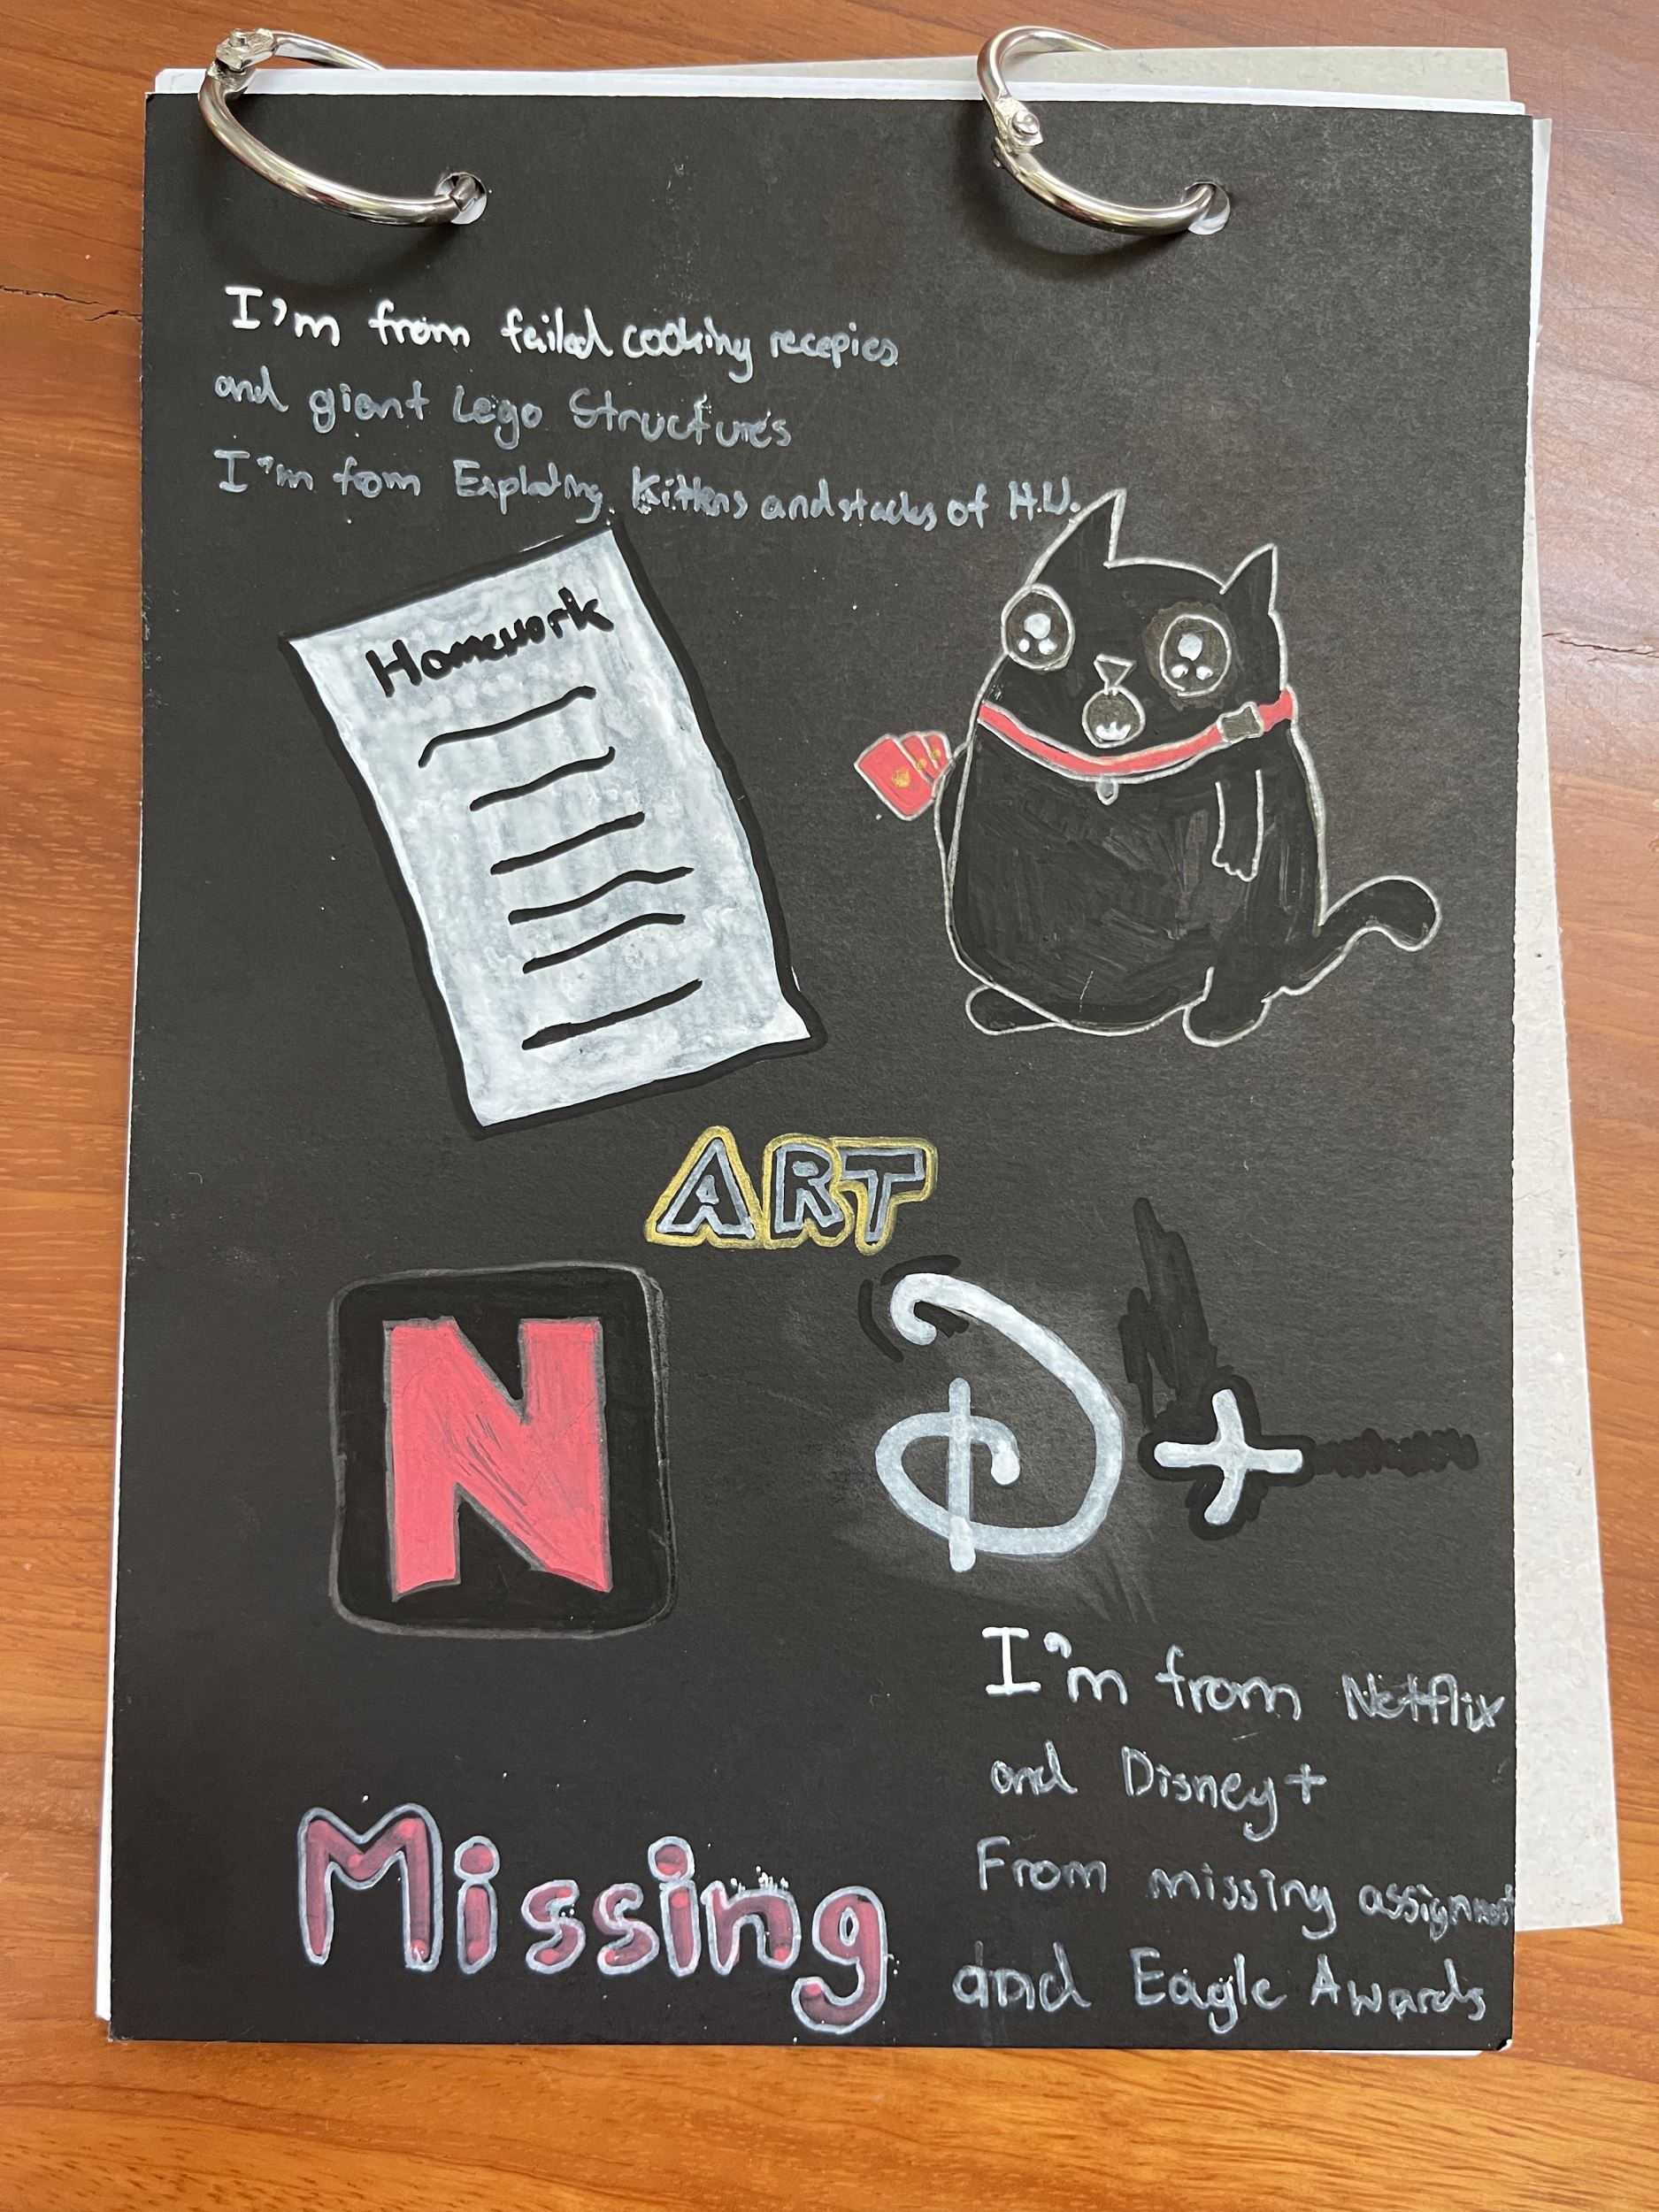 I'm from failed cooking recepies
and giant Lego Structures
I'm fom Exploding Kittens and stacks of H.W.
Homework
ART
N
D+
I'm from Netflix
and Disney+
From missing assignment
and Eagle Awards
Missing